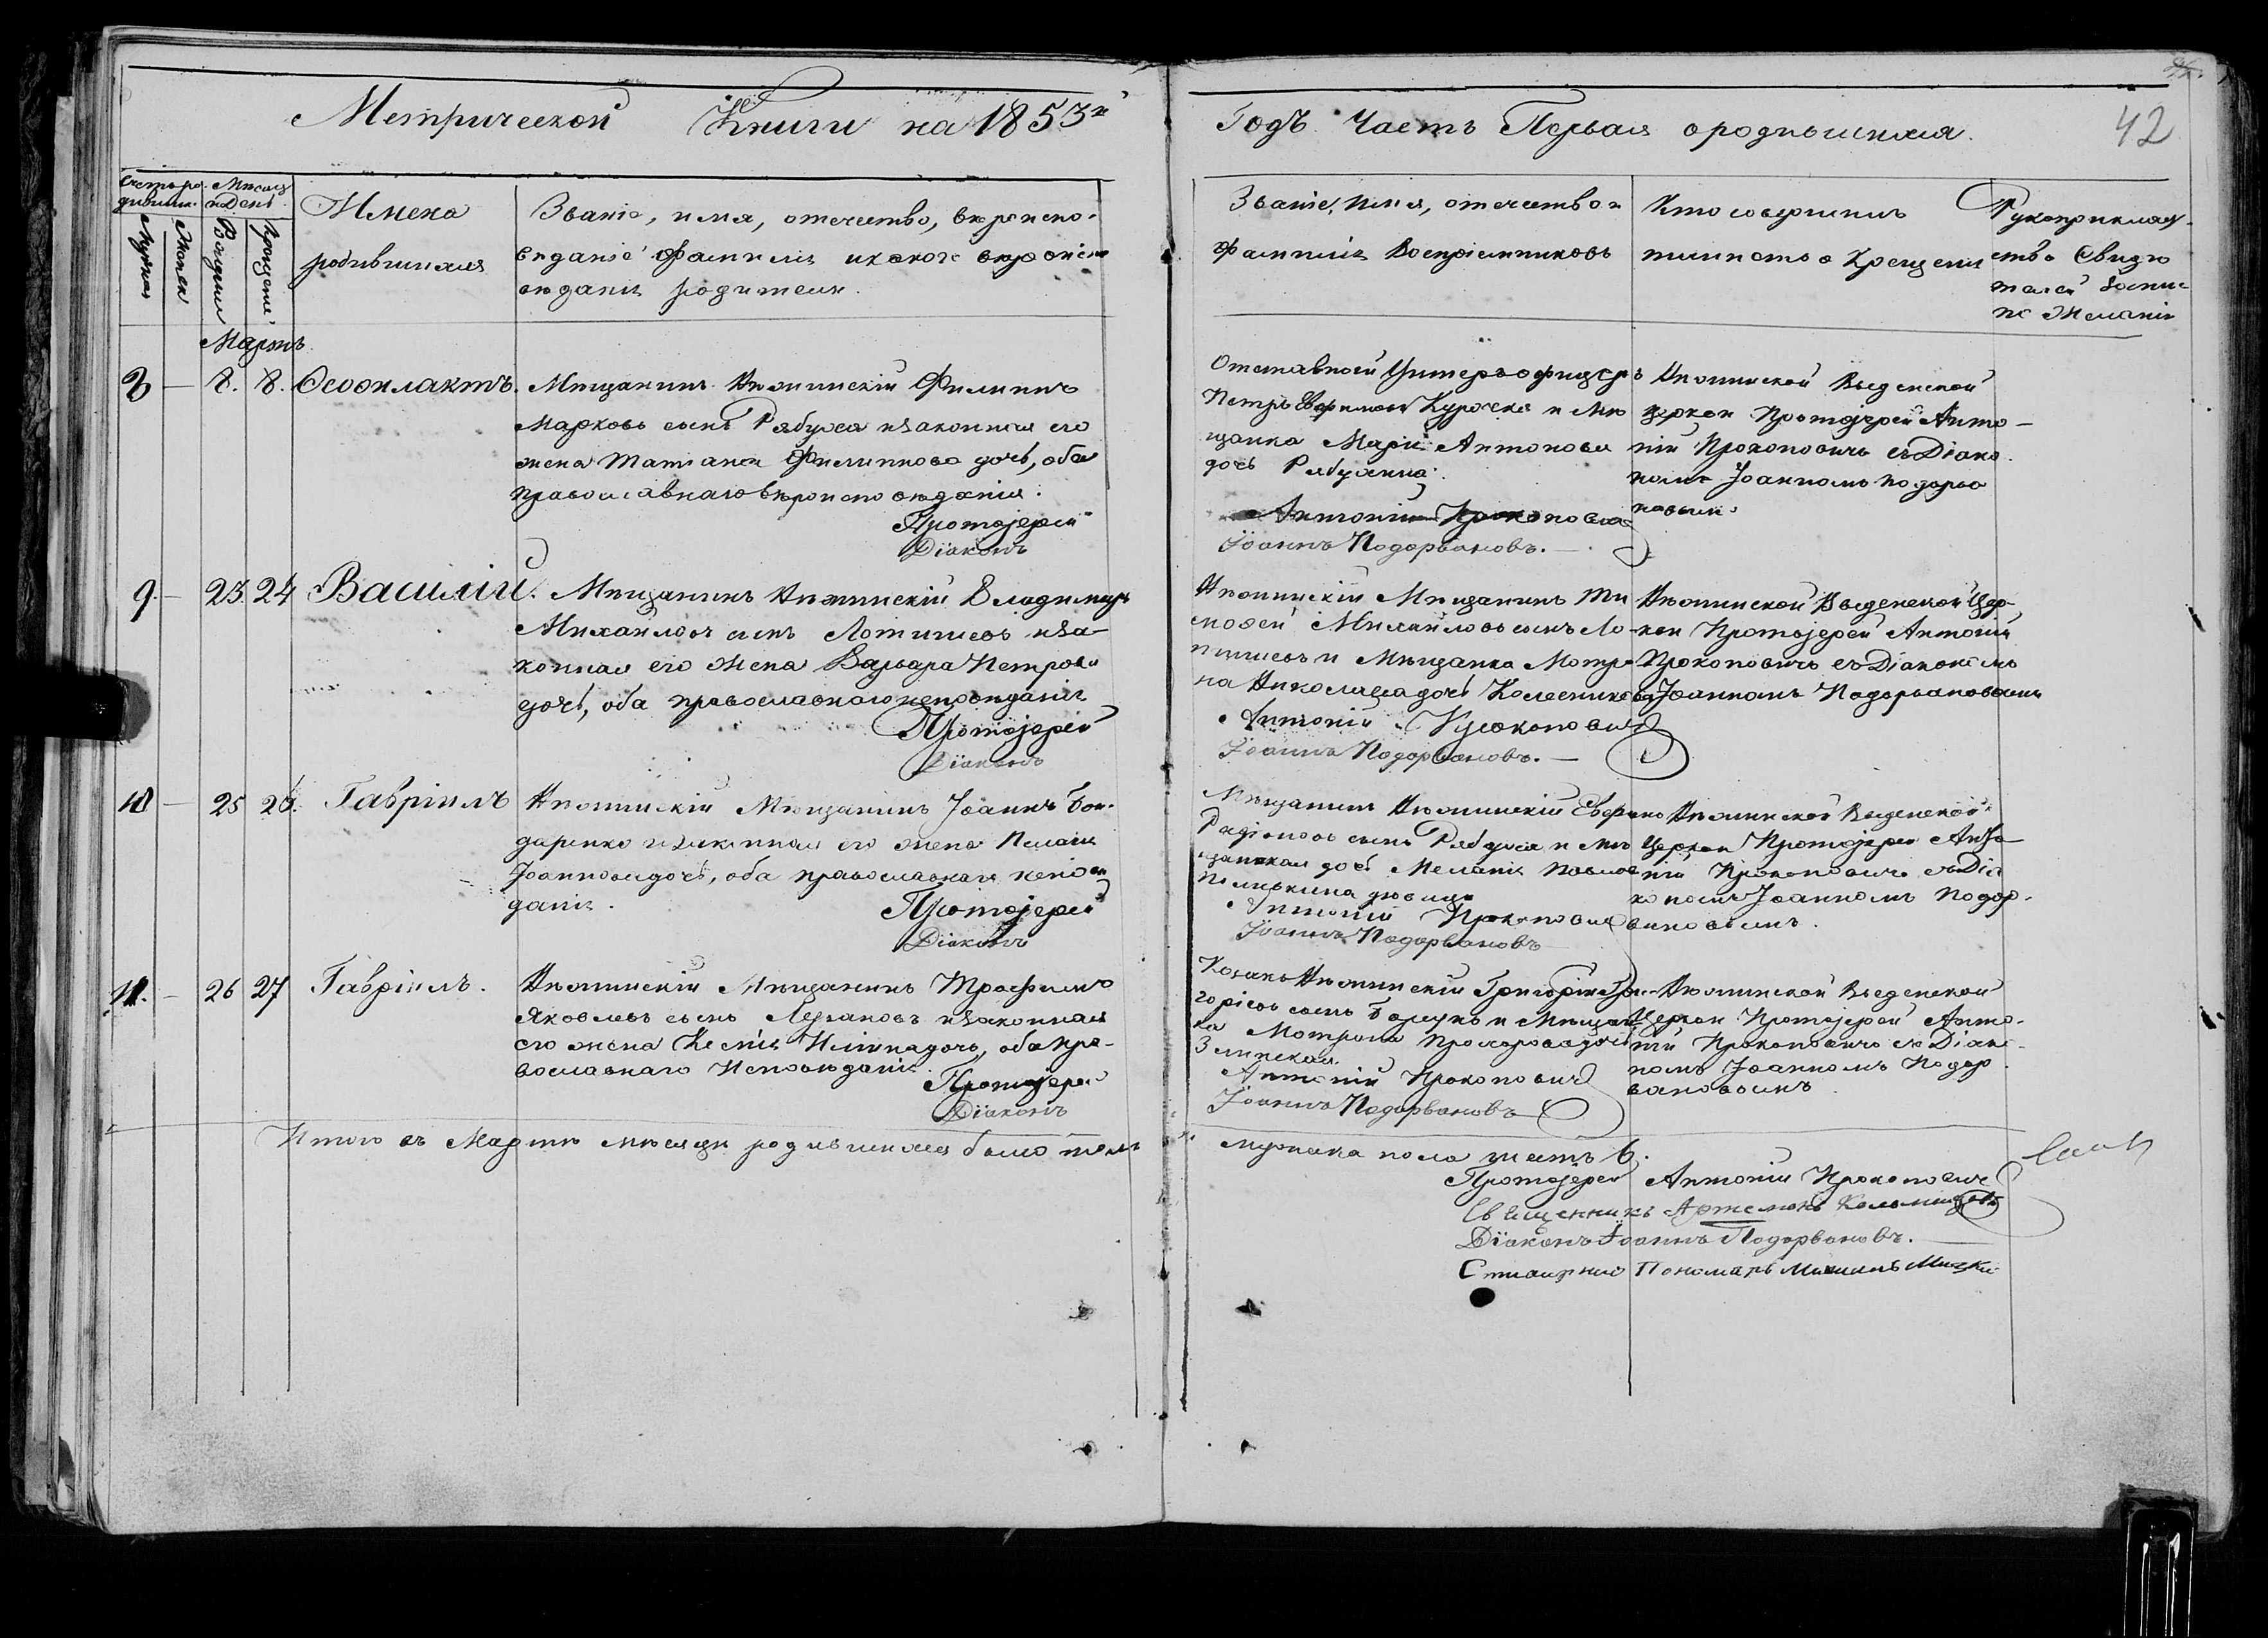 Метрической Книги на 1853й
Годъ Часть Первая о родившихся.
42
Счетъ ро-
дивших.
Мѣсяцъ
и День
Мужеск
Женск
Рожденія
Крещенія
Имена
родившихся
Званіе, имя, отечество, вѣроиспо-
вѣданіе фамилія и какого вѣроиспо
вѣданія родители.
Званіе, имя, отечество и
фамилія Воспріемниковъ
Кто совершилъ
таинство Крещенія
Рукоприклад-
ство Свидѣ
телей записи
по Желанію
Мартъ
8 — 8. 8. Ѳеофилактъ.
Мѣщанинъ Нѣжинскій Филиппъ
Марковъ сынъ Рябуха и законная его
жена Татіана Филиппова дочь, оба
православнаго вѣроисповѣданія.
Протоіерей
Діаконъ
Отставной Унтеръ офицеръ
Петръ Евфимовъ Курочка и Мѣ
щанка Марія Антонова
дочь
Антоній Прокоповичъ
Іоаннъ Подорвановъ.
Нѣжинской Введенской
церкви Протоіерей Анто-
ній Прокоповичъ съ Діако
номъ Іоанномъ Подорва
новымъ
9. — 23. 24 Василій.
Мѣщанинъ Нѣжинскій Владимиръ
Михайловъ сынъ Лотышевъ и за-
конная его жена Варвара Петрова
дочь, оба православнаго исповѣданія
Протоіерей
Діаконъ
Нѣжинскій Мѣщанинъ Ти
моѳей Михайловъ сынъ Ло-
тышевъ и Мѣщанка Мотро
на Николаева дочь Колесникова
Антоній Прокоповичъ
Іоаннъ Подорвановъ. —
Нѣжинской Введенской Цер-
кви Протоіерей Антоній
Прокоповичъ съ Діакономъ
Іоанномъ Подорвановымъ
10 — 25 26. Гавріилъ
Нѣжинскій Мѣщанинъ Іоаннъ Бон-
даренко и законная его жена Пелагія
Іоаннова дочь, оба православнаго исповѣ
данія.
Протоіерей
Діаконъ
Мѣщанинъ Нѣжинскій
Радіоновъ сынъ Рябуха и Мѣ
щанская дочь Меланія
дѣвица
Антоній Прокоповичъ
Іоаннъ Подорвановъ
Нѣжинской Введенской
Церкви Протоіерей Анто
ній Прокоповичъ съ Діа
кономъ Іоанномъ Подор-
вановымъ.
11. — 26 27 Гавріилъ.
Нѣжинскій Мѣщанинъ Трофимъ
Яковлевъ сынъ и законная
его жена Ксенія дочь, оба пра-
вославнаго Исповѣданія.
Протоіерей
Діаконъ
Козакъ Нѣжинскій Григорій Гри-
горіевъ сынъ и Мѣщан
ка Мотрона Прохорова дочь
Антоній Прокоповичъ
Іоаннъ Подорвановъ
Нѣжинской Введенской
Церкви Протоіерей Анто-
ній Прокоповичъ съ Діако-
номъ Іоанномъ Подор
вановымъ
Итого въ Мартѣ мѣсяцѣ родившихся было
мужска пола шесть 6.
Протоіерей Антоній Прокоповичъ
Священникъ Артемонъ
Діаконъ Іоаннъ Подорвановъ.
Пономарь